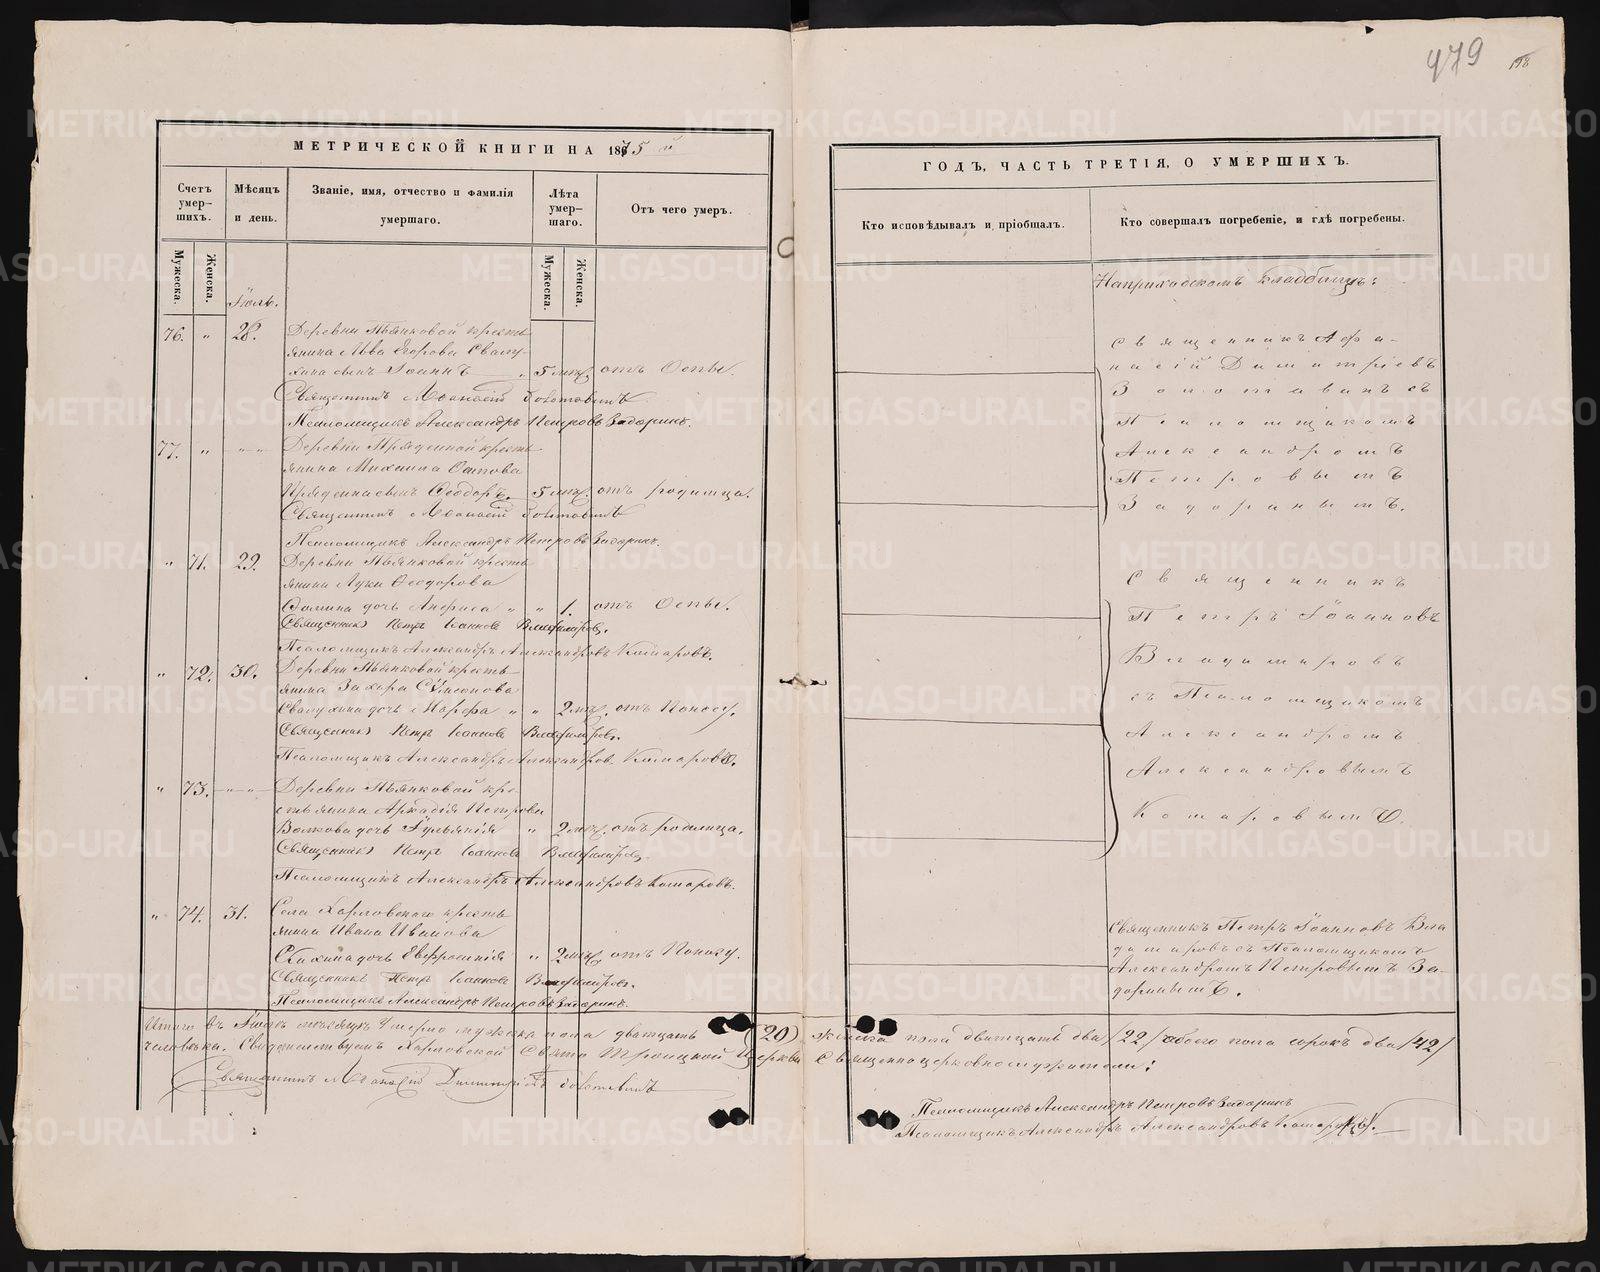 479
198
МЕТРИЧЕСКОЙ КНИГИ НА 1875 й
Счетъ умер-шихъ.
Мѣсяцъ и день.
Званіе, имя, отчество и фамилія умершаго.
Лѣта умер-шаго.
Отъ чего умеръ.
Мужеска.
Женска.
Мужеска.
Женска.
Іюль.
76. " 28. Деревни Пьянковой кресть
янина Льва Егорова Свалу-
хина сынъ Іоаннъ " 5 мѣс. отъ Оспы.
Священникъ Афанасій
Псаломщикъ Александръ Петровъ Задоринъ.
77. " " " Деревни Пряденной кресть
янина Михаила
Пряденна сынъ Ѳеодоръ. 5 мѣс. отъ родимца.
Священникъ Афанасій
Псаломщикъ Александръ Петровъ Задоринъ.
" 71. 29. Деревни Пьянковой кресть
янина Луки Ѳеодорова
Ѳомина дочь Анфиса " " 1. отъ Оспы.
Священникъ Петръ Іоанновъ Владиміровъ.
Псаломщикъ Александръ Александровъ Комаровъ.
" 72. 30. Деревни Пьянковой кресть
янина Захара Симеонова
Свалухина дочь Марфа " " 2 мѣс. отъ Поносу.
Священникъ Петръ Іоанновъ Владиміровъ.
Псаломщикъ Александръ Александровъ Комаровъ.
" 73. " " Деревни Пьянковой кре-
стьянина Аркадія Петрова
Волкова дочь Іульянія " 2 мѣс. отъ родимца.
Священникъ Петръ Іоанновъ Владиміровъ.
Псаломщикъ Александръ Александровъ Комаровъ.
" 74. 31. Села Харловскаго кресть
янина Ивана Иванова
дочь Евфросинія " 2 мѣс. отъ Поносу.
Священникъ Петръ Іоанновъ Владиміровъ.
Псаломщикъ Александръ Петровъ Задоринъ.
ГОДЪ, ЧАСТЬ ТРЕТІЯ, О УМЕРШИХЪ.
Кто исповѣдывалъ и пріобщалъ.
Кто совершалъ погребеніе, и гдѣ погребены.
На приходскомъ кладбищѣ:
Священникъ Афа-
насій Димитріевъ
съ
Псаломщикомъ
Александромъ
Петровымъ
Задоринымъ.
Священникъ
Петръ Іоанновъ
Владиміровъ
съ Псаломщикомъ
Александромъ
Александровымъ
Комаровымъ.
Священникъ Петръ Іоанновъ Вла
диміровъ съ Псаломщикомъ
Александромъ Петровымъ За-
доринымъ.
Итого въ Іюлѣ мѣсяцѣ Умерло мужска пола двадцать (20) женска пола двадцать два /22/ обоего пола сорокъ два /42/
человѣка. Свидетельствуемъ Харловской Свято Троицкой Церкви Священноцерковнослужители:
Священникъ Афанасій Димитріевъ
Псаломщикъ Александръ Петровъ Задоринъ
Псаломщикъ Александръ Александровъ Комаровъ.
METRIKI.GASO-URAL.RU